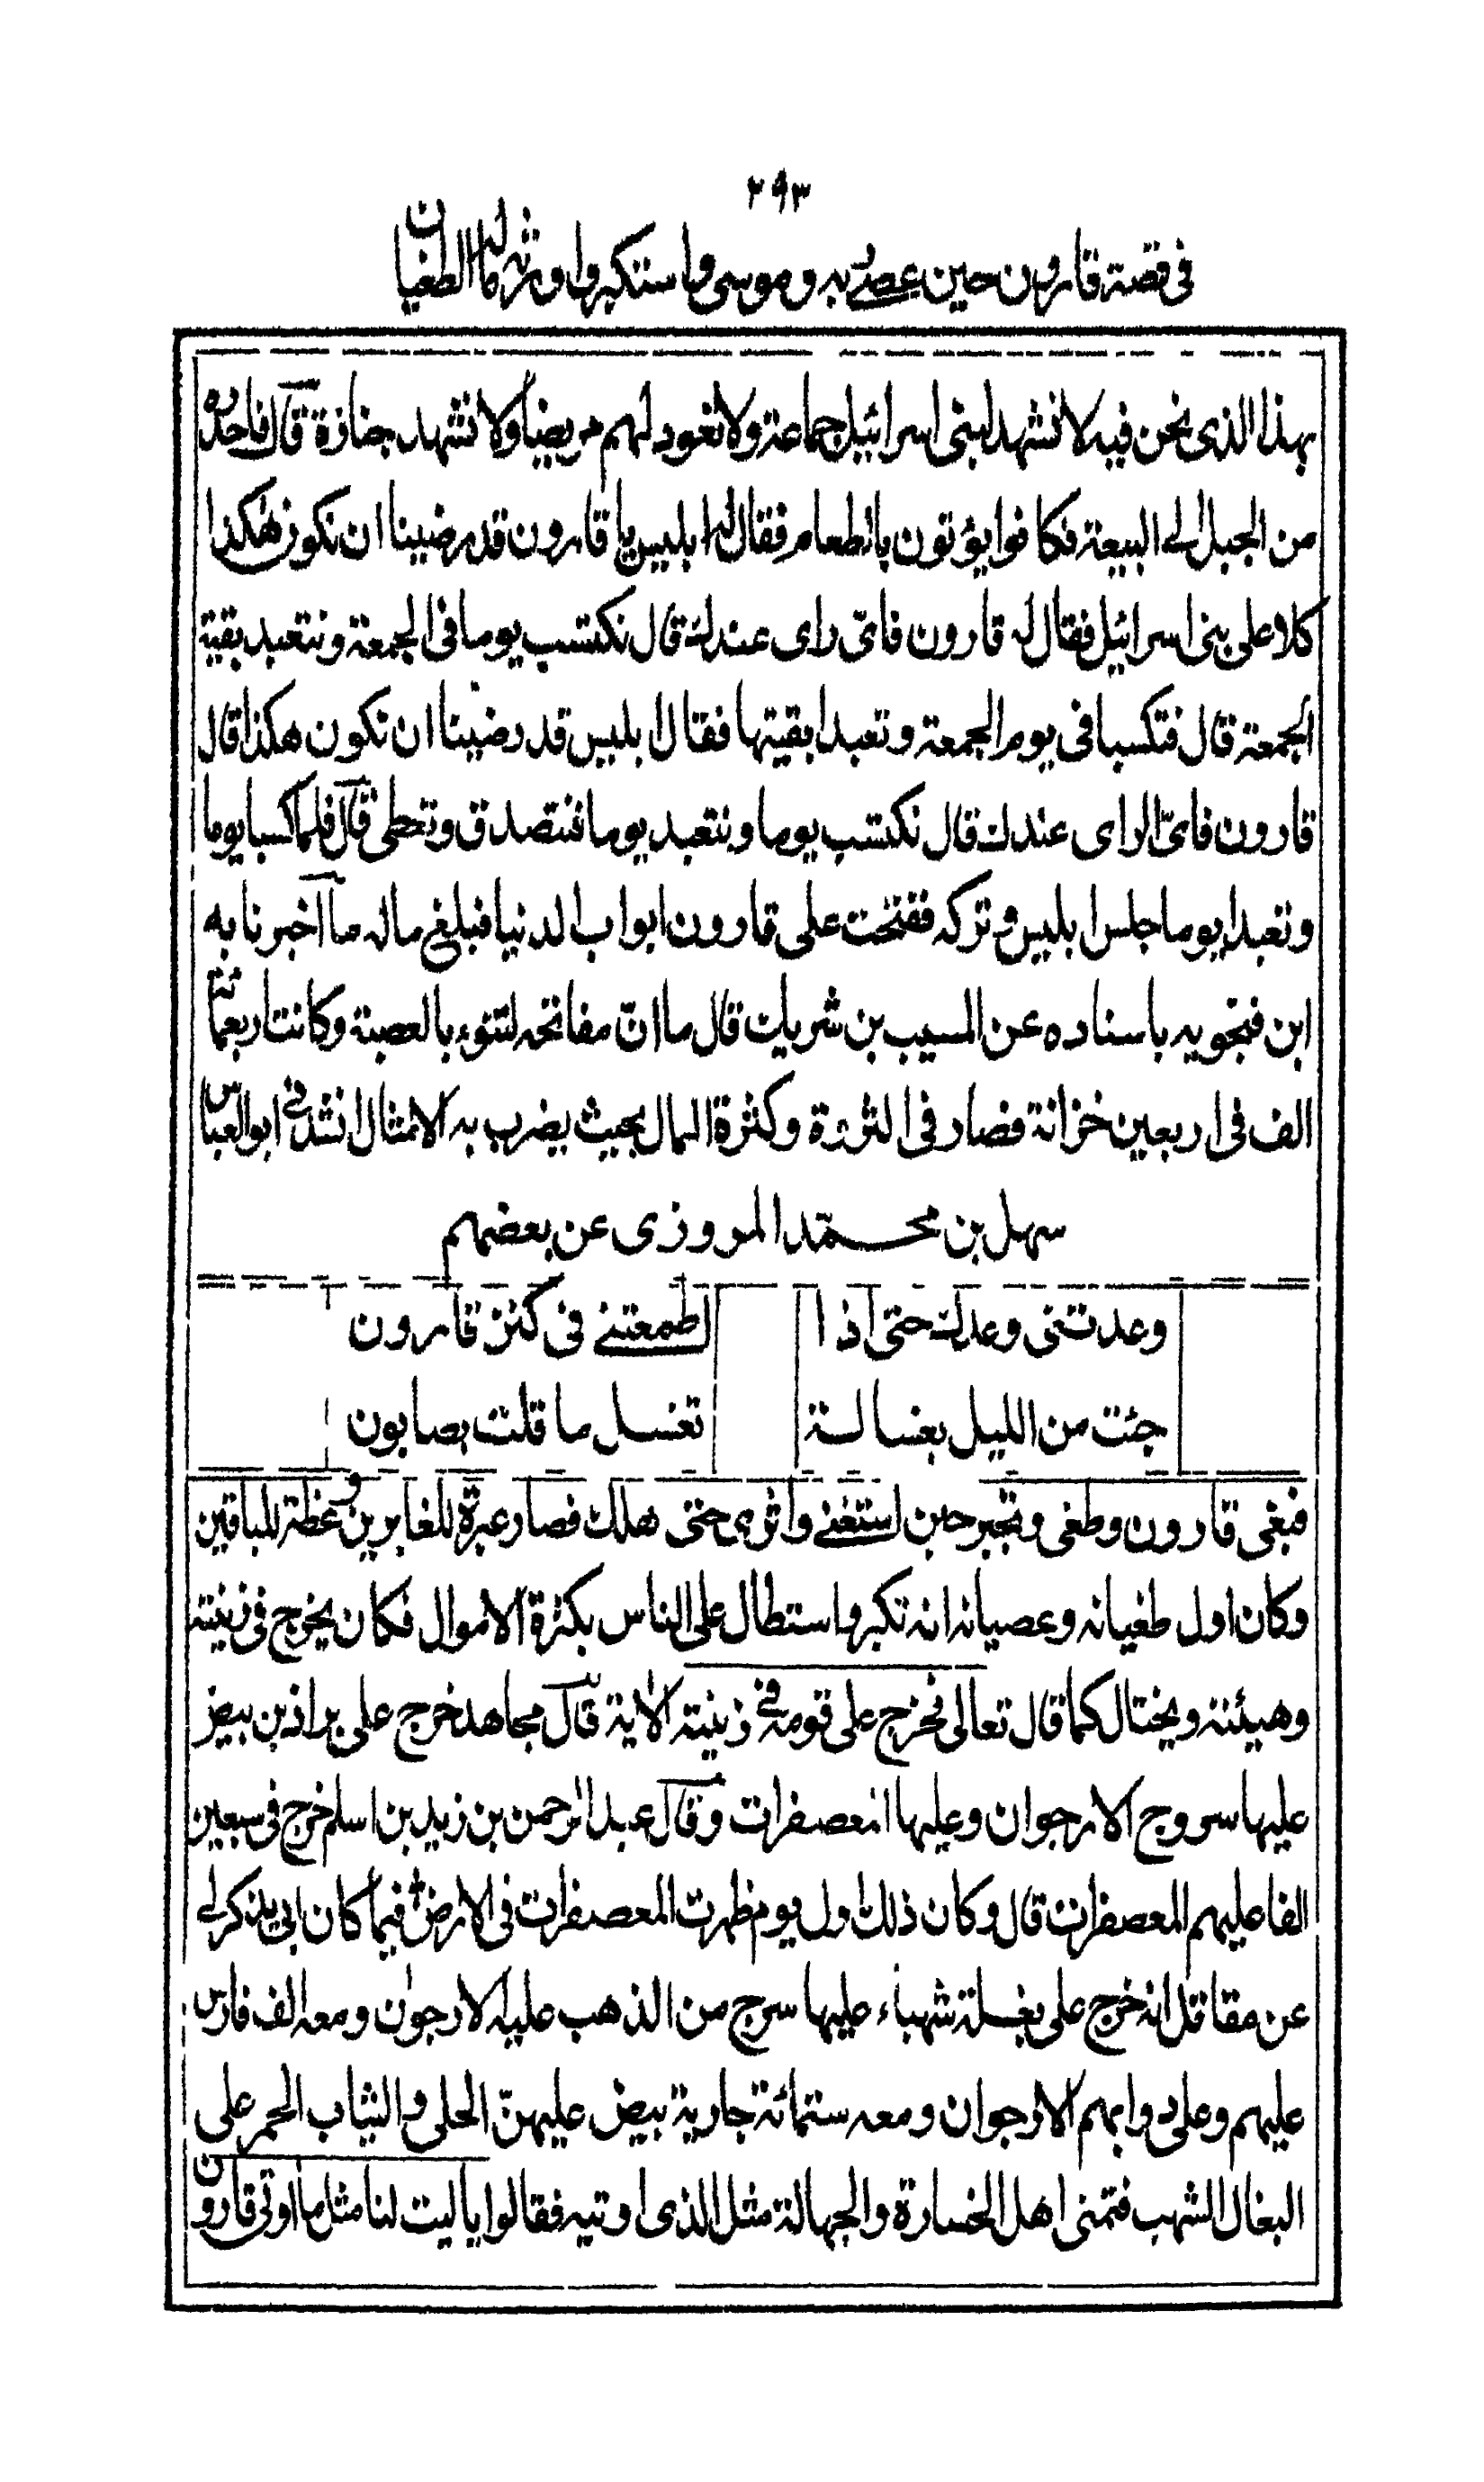 ٢٩٣
في قصة قارون حين عصى ربه وموسى واستكبر واورثه ماله الطغيان
بهذا الذي نحن فيه لا نشهد لبنى اسرائيل جماعة ولا نعود لهم مريضا ولا نشهد جنازة قال فاحدره
من الجبل الى البيعة فكانوا يؤتون بالطعام فقال له ابليس يا قارون قد رضينا ان نكون هكذا
كلا على بنى اسرائيل فقال له قارون فاىّ راى عندك قال نكتسب يوما فى الجمعة ونتعبد بقية
الجمعة قال فتكسبا فى يوم الجمعة وتعبدا بقيتها فقال ابليس قد رضينا ان نكون هكذا قال
قارون فاىّ الراى عندك قال نكتسب يوما ونتعبد يوما فنتصدق ونعطى قال فلما كسبا يوما
وتعبدا يوما جلس ابليس وتركه ففتحت على قارون ابواب الدنيا فبلغ ماله ما اخبرنا به
ابن فنجويه باسناده عن المسيب بن شريك قال ما انّ مفاتحه لتنوء بالعصبة وكانت اربعمائة
الف فى اربعين خزانة فصار فى الثروة وكثرة المال بحيث يضرب به الامثال انشدنى ابو العباس
سهل بن محمّد المروزى عن بعضهم
وعدتنى وعدك حتى اذا اطمعتنى فى كنز قارون
جئت من الليل بغسالة تغسل ما قلت بصابون
فبغى قارون وطغى وتجبر حين استغنى واثرى حتى هلك فصار عبرة للغابرين وعظة للباقين
وكان اول طغيانه وعصيانه انه تكبر واستطال على الناس بكثرة الاموال فكان يخرج فى زينته
وهيئته ويختال كما قال تعالى فخرج على قومه في زينته الاية قال مجاهد خرج على براذين بيض
عليها سروج الارجوان وعليها المعصفرات وقال عبد الرحمن بن زيد بن اسلم خرج فى سبعين
الفا عليهم المعصفرات قال وكان ذلك اول يوم ظهرت المعصفرات فى الارض فيما كان ابى يذكر لى
عن مقاتل انه خرج على بغلة شهباء عليها سرج من الذهب عليه الارجوان ومعه الف فارس
عليهم وعلى دوابهم الارجوان ومعه ستمائة جارية بيض عليهنّ الحلى والثياب الحمر على
البغال الشهب فتمنى اهل الخسارة والجهالة مثل الذى اوتيه فقالوا يا ليت لنا مثل ما اوتى قارون